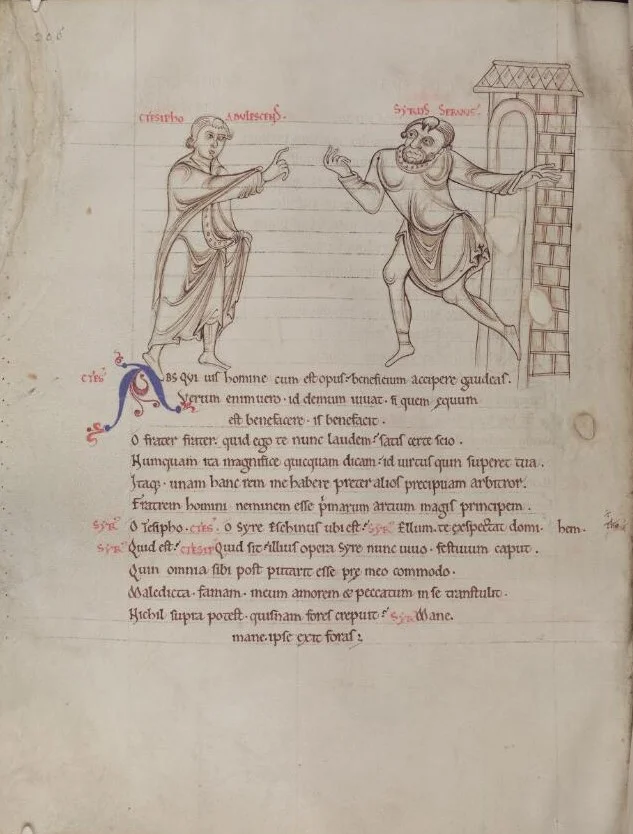 CTESIPHO ADULESCENS. SYRUS SERVUS.
CTES. ABSQVI uis homine cum est opus beneficium accipere gaudeas.
Verum enimuero. id demum iuuat. si quem ęquum
est benefacere. is benefacit.
O frater frater. quid ego te nunc laudem? satis certe scio.
Numquam ita magnifice quicquam dicam. id uirtus quin superet tua.
Itaq; unam hanc rem me habere preter alios precipuam arbitror.
Fratrem homini neminem esse p̃marum artium magis principem.
SYR. O tesipho. CTES. O Syre Eschinus ubi est? SYR. Ellum. te exspectat domi. hem.
SYR. Quid est? CTESIP. Quid sit? illius opera Syre nunc uiuo. festiuum caput.
Quin omnia sibi post putarit esse prę meo commodo.
Maledicta. famam. meum amorem & peccatum in se transtulit.
Nichil supra potest. quisnam fores crepuit? SYR. Mane.
mane. ipse exit foras;